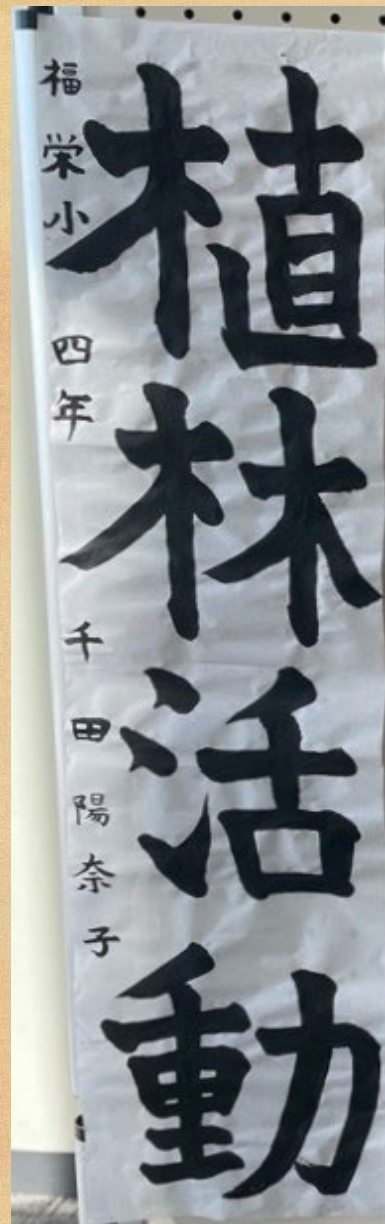 植林活動
福栄小 四年 千田陽奈子